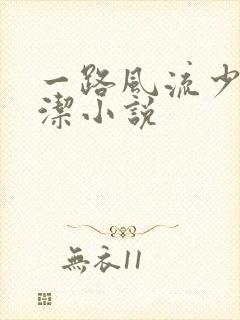 一路風流少
潔小説
無衣11